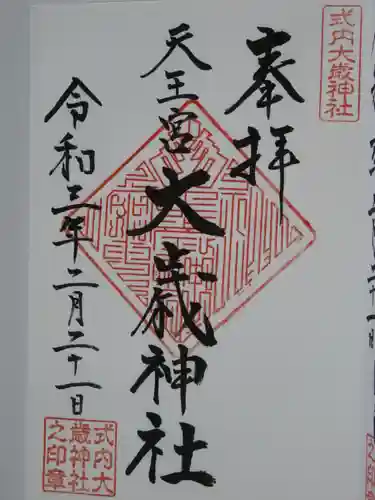 式内大歳神社
奉拝
天王宮
大歳神社
令和三年二月二十一日
式内大
歳神社
之印章